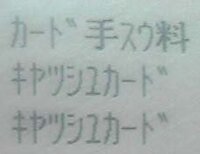 カード手スウ料
キヤツシユカード
キヤツシユカード